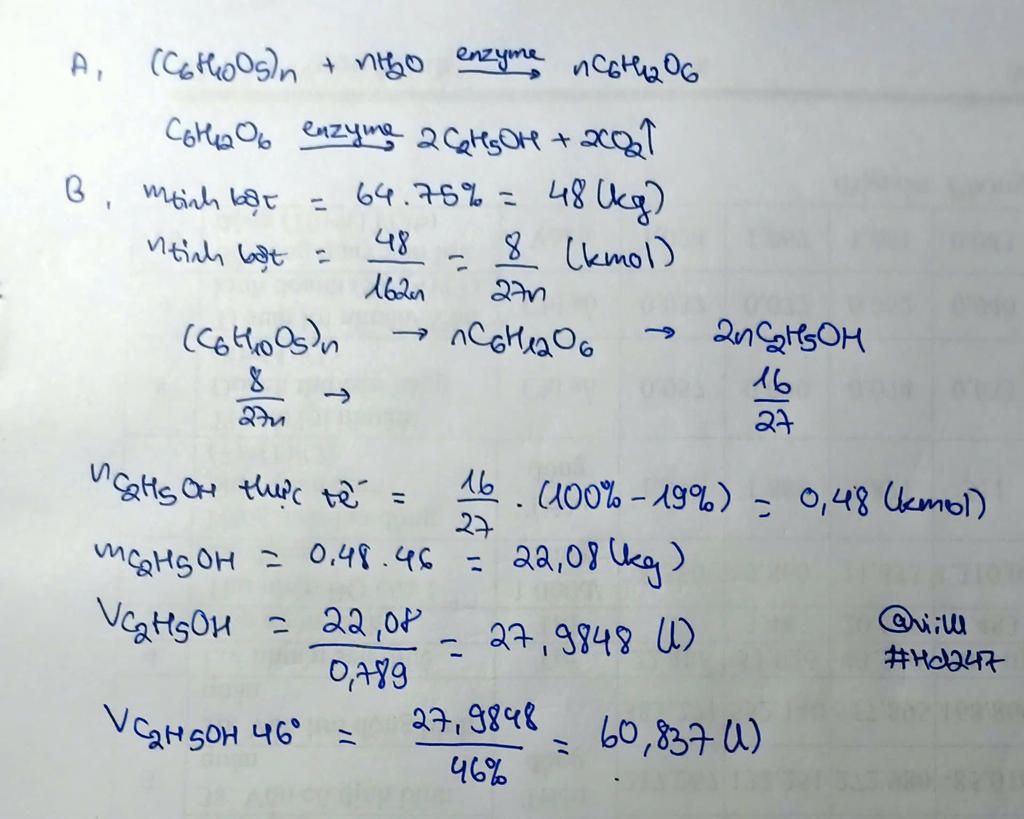 A, (C6H10O5)n + nH2O enzyme → nC6H12O6
C6H12O6 enzyme → 2C2H5OH + 2CO2↑
B, m tinh bột = 64.75% = 48 (kg)
n tinh bột = 48/162n = 8/27n (kmol)
(C6H10O5)n → nC6H12O6 → 2nC2H5OH
8/27n → 16/27
nC2H5OH thực tế = 16/27 . (100% - 19%) = 0,48 (kmol)
mC2H5OH = 0,48.46 = 22,08 (kg)
VC2H5OH = 22,08/0,789 = 27,9848 (l)
#Hd247
VC2H5OH 46° = 27,9848/46% = 60,837 (l)